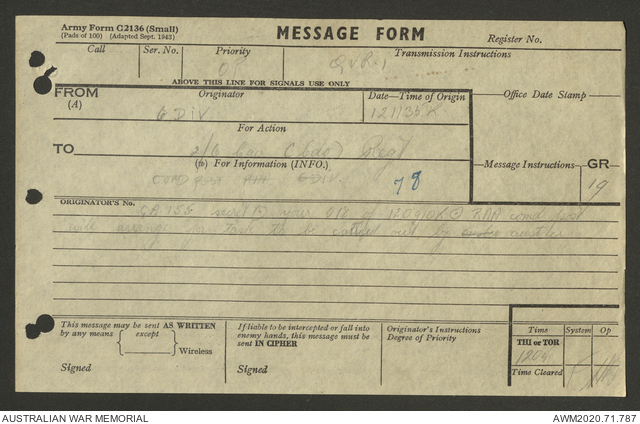 Army Form C2136 (Small)
(Pads of 100) (Adapted Sept. 1943)
MESSAGE FORM
Register No.
Call
Ser. No.
Priority
Transmission Instructions
OP
QVR.1
ABOVE THIS LINE FOR SIGNALS USE ONLY
FROM
(A)
Originator
Date—Time of Origin
Office Date Stamp
6 DIV
121135K
For Action
TO
2/6 Cav (Cdo) Regt
(W) For Information (INFO.)
Message Instructions
GR
78
19
ORIGINATOR'S No.
GA 155 secret
will arrange for task to be carried out by
This message may be sent AS WRITTEN
by any means except
Wireless
Signed
If liable to be intercepted or fall into
enemy hands, this message must be
sent IN CIPHER
Signed
Originator's Instructions
Degree of Priority
Time
System
Op
THI or TOR
Time Cleared
AUSTRALIAN WAR MEMORIAL
AWM2020.71.787